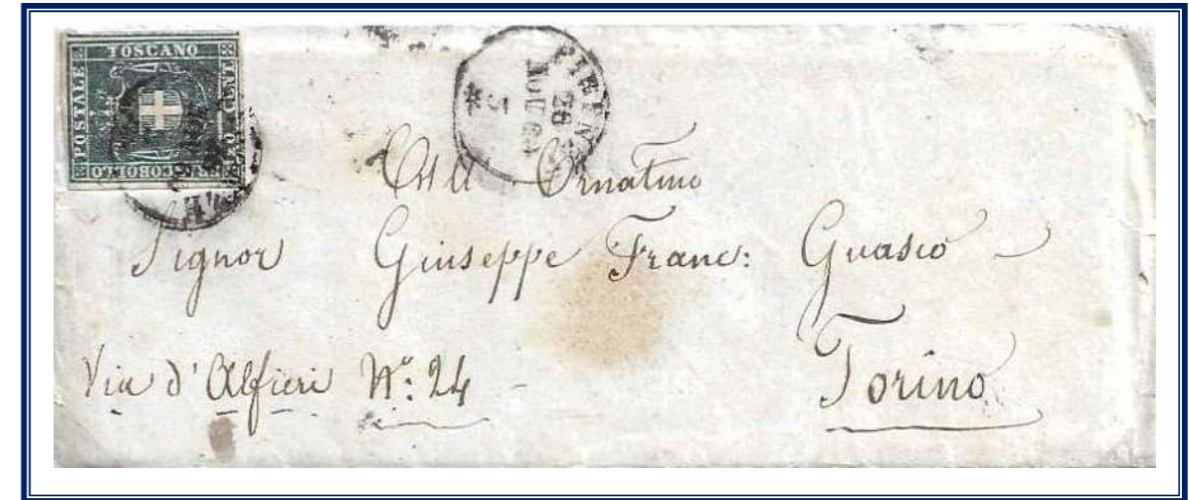 TOSCANO
POSTALE
CENT
COBOLLO
FIRENZE
26
NOV 60
3
*
All Ornatmo
Signor Giuseppe Franc: Guasco
Via d'Alfieri N°: 24
Torino